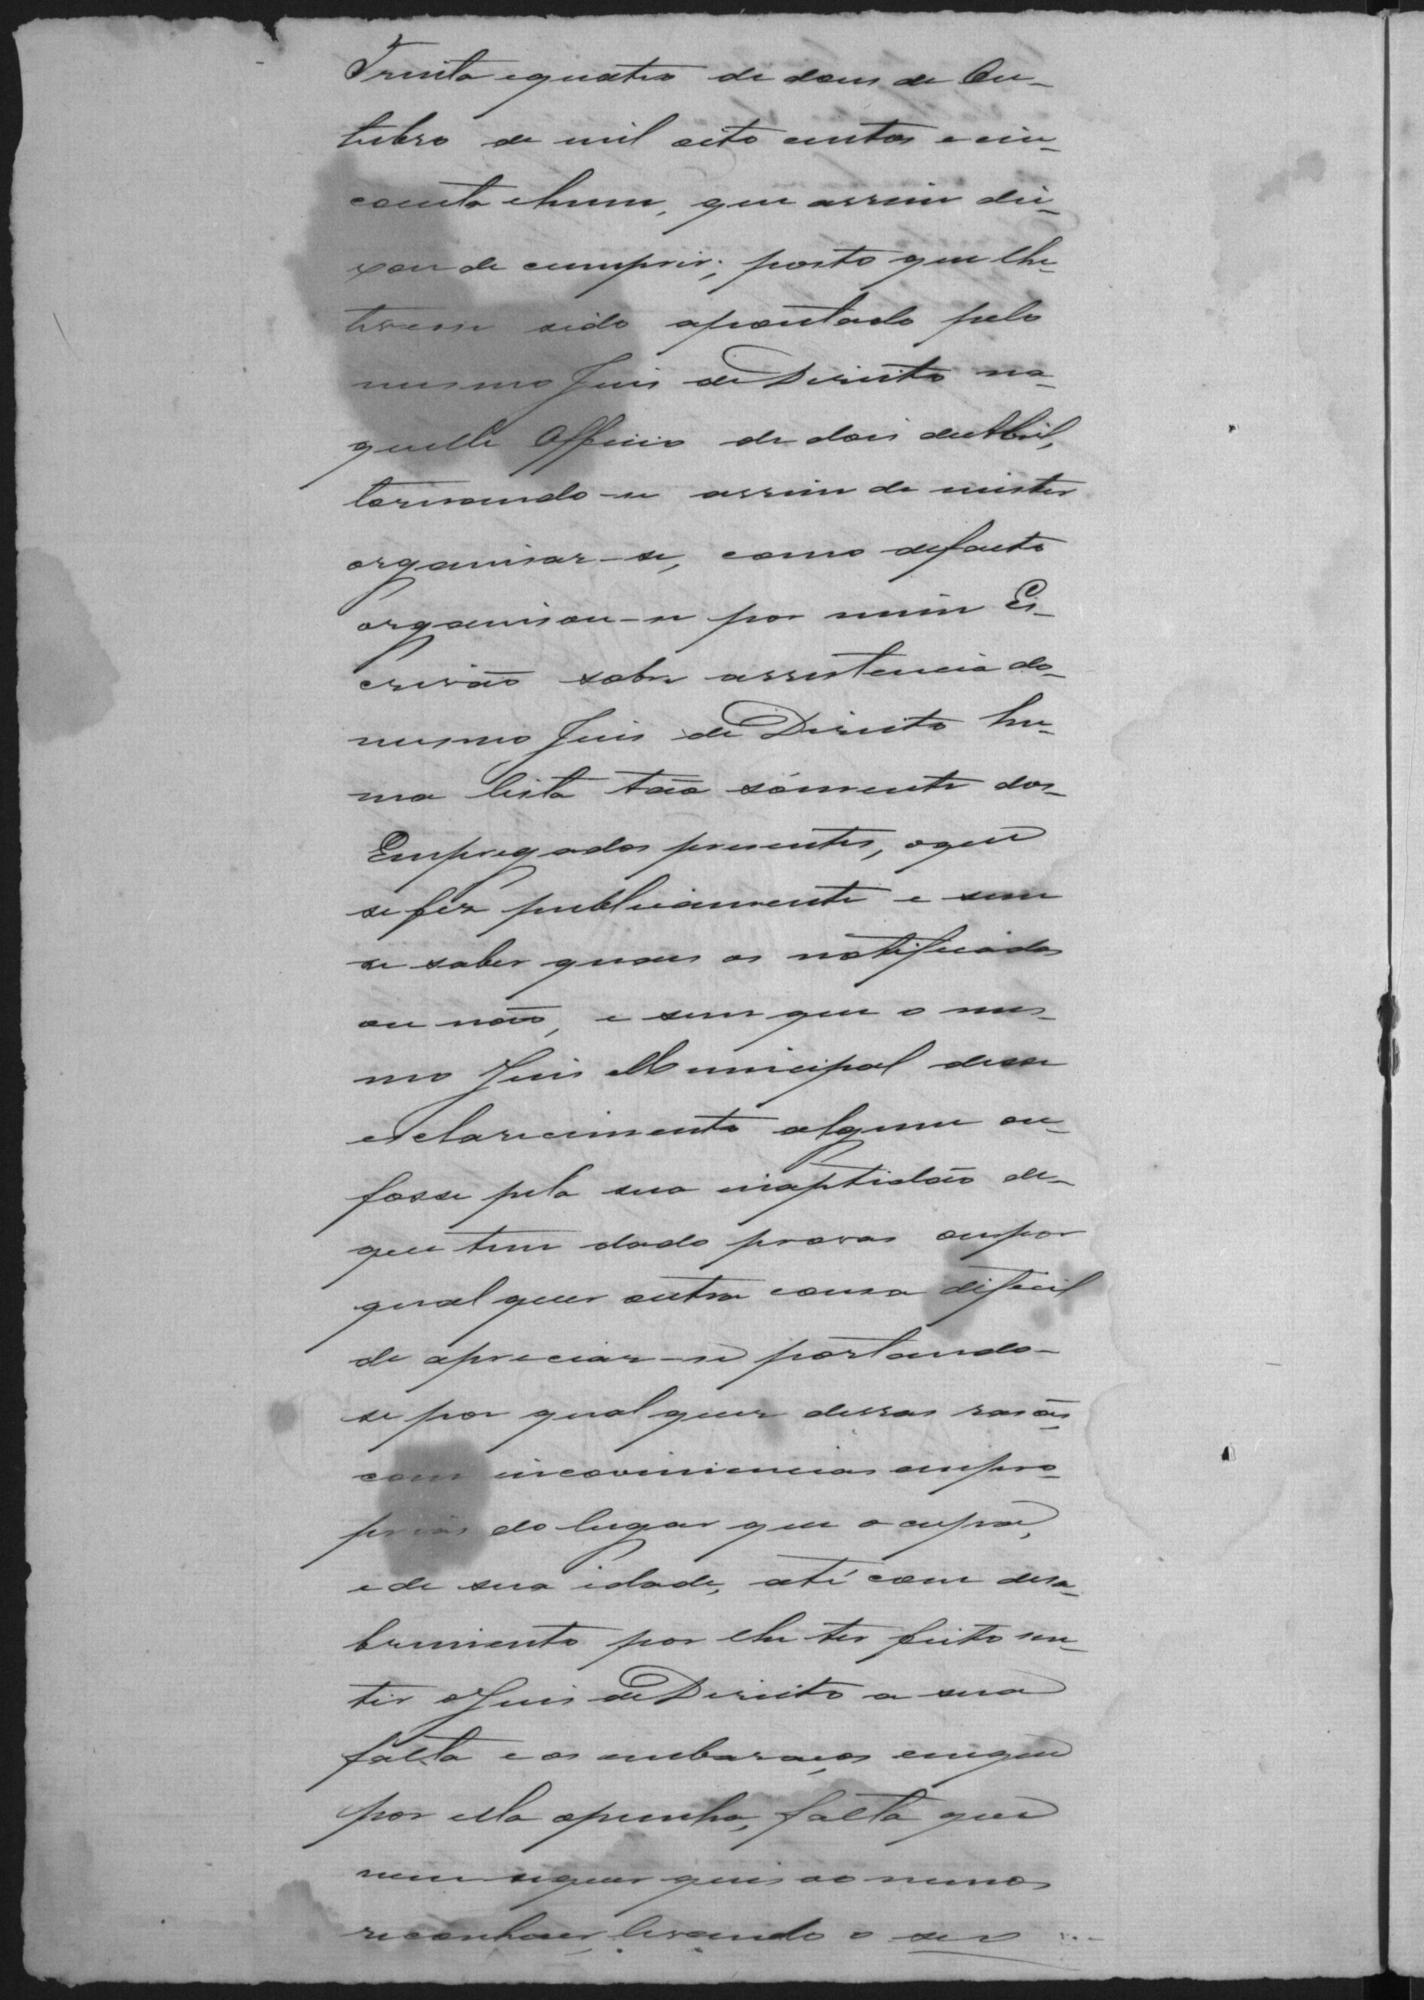 Trinta equatro de dous de Ou-
tubro de mil oito centos e cin-
coenta ehum, que assim dei-
xou de cumprir; posto que lhe
tivesse sido apontado pelo
mesmo Juis de Direito na-
quelle Officio de dois de Abril,
tornando-se assim de mister
organisar-se, como defacto
organisou-se por mim Es-
crivão sobre assistencia do
mesmo Juis de Direito hu-
ma lista tão sómente dos
Empregados presentes, oque
se fez publicamente e sem
se saber quaes os notificados
ou não, e sem que o mes-
mo Juis Municipal desse
esclarecimento algum ou
fosse pela sua inaptidão de
que tem dado provas ou por
qualquer outra cousa dificil
de apreciar-se portando-
se por qualquer dessas rasões,
com inconveniencias empro-
prias do lugar que occupa,
e de sua idade, até com desa-
brimento por lhe ter feito sen-
tir o Juis de Direito a sua
falta e os embaraços emque
por ella opunha, falta que
nem siquer quis ao menos
reconhecer, levando o seu